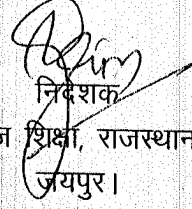 निदेशक
शिक्षा, राजस्थान
जयपुर।